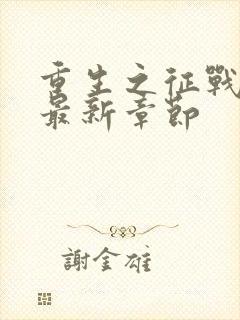 重生之征戰
最新章節
謝金雄